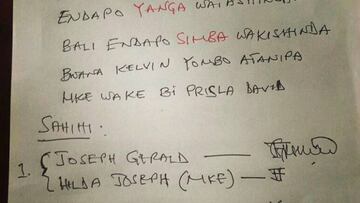 ENDAPO YANGA WATASHINDA
BALI ENDAPO SIMBA WAKISHINDA
BWANA KELVIN YOMBO ATANIPA
MKE WAKE BI PRISLA DAVID
SAHIHI:
1. JOSEPH GERALD —
HILDA JOSEPH (MKE) —